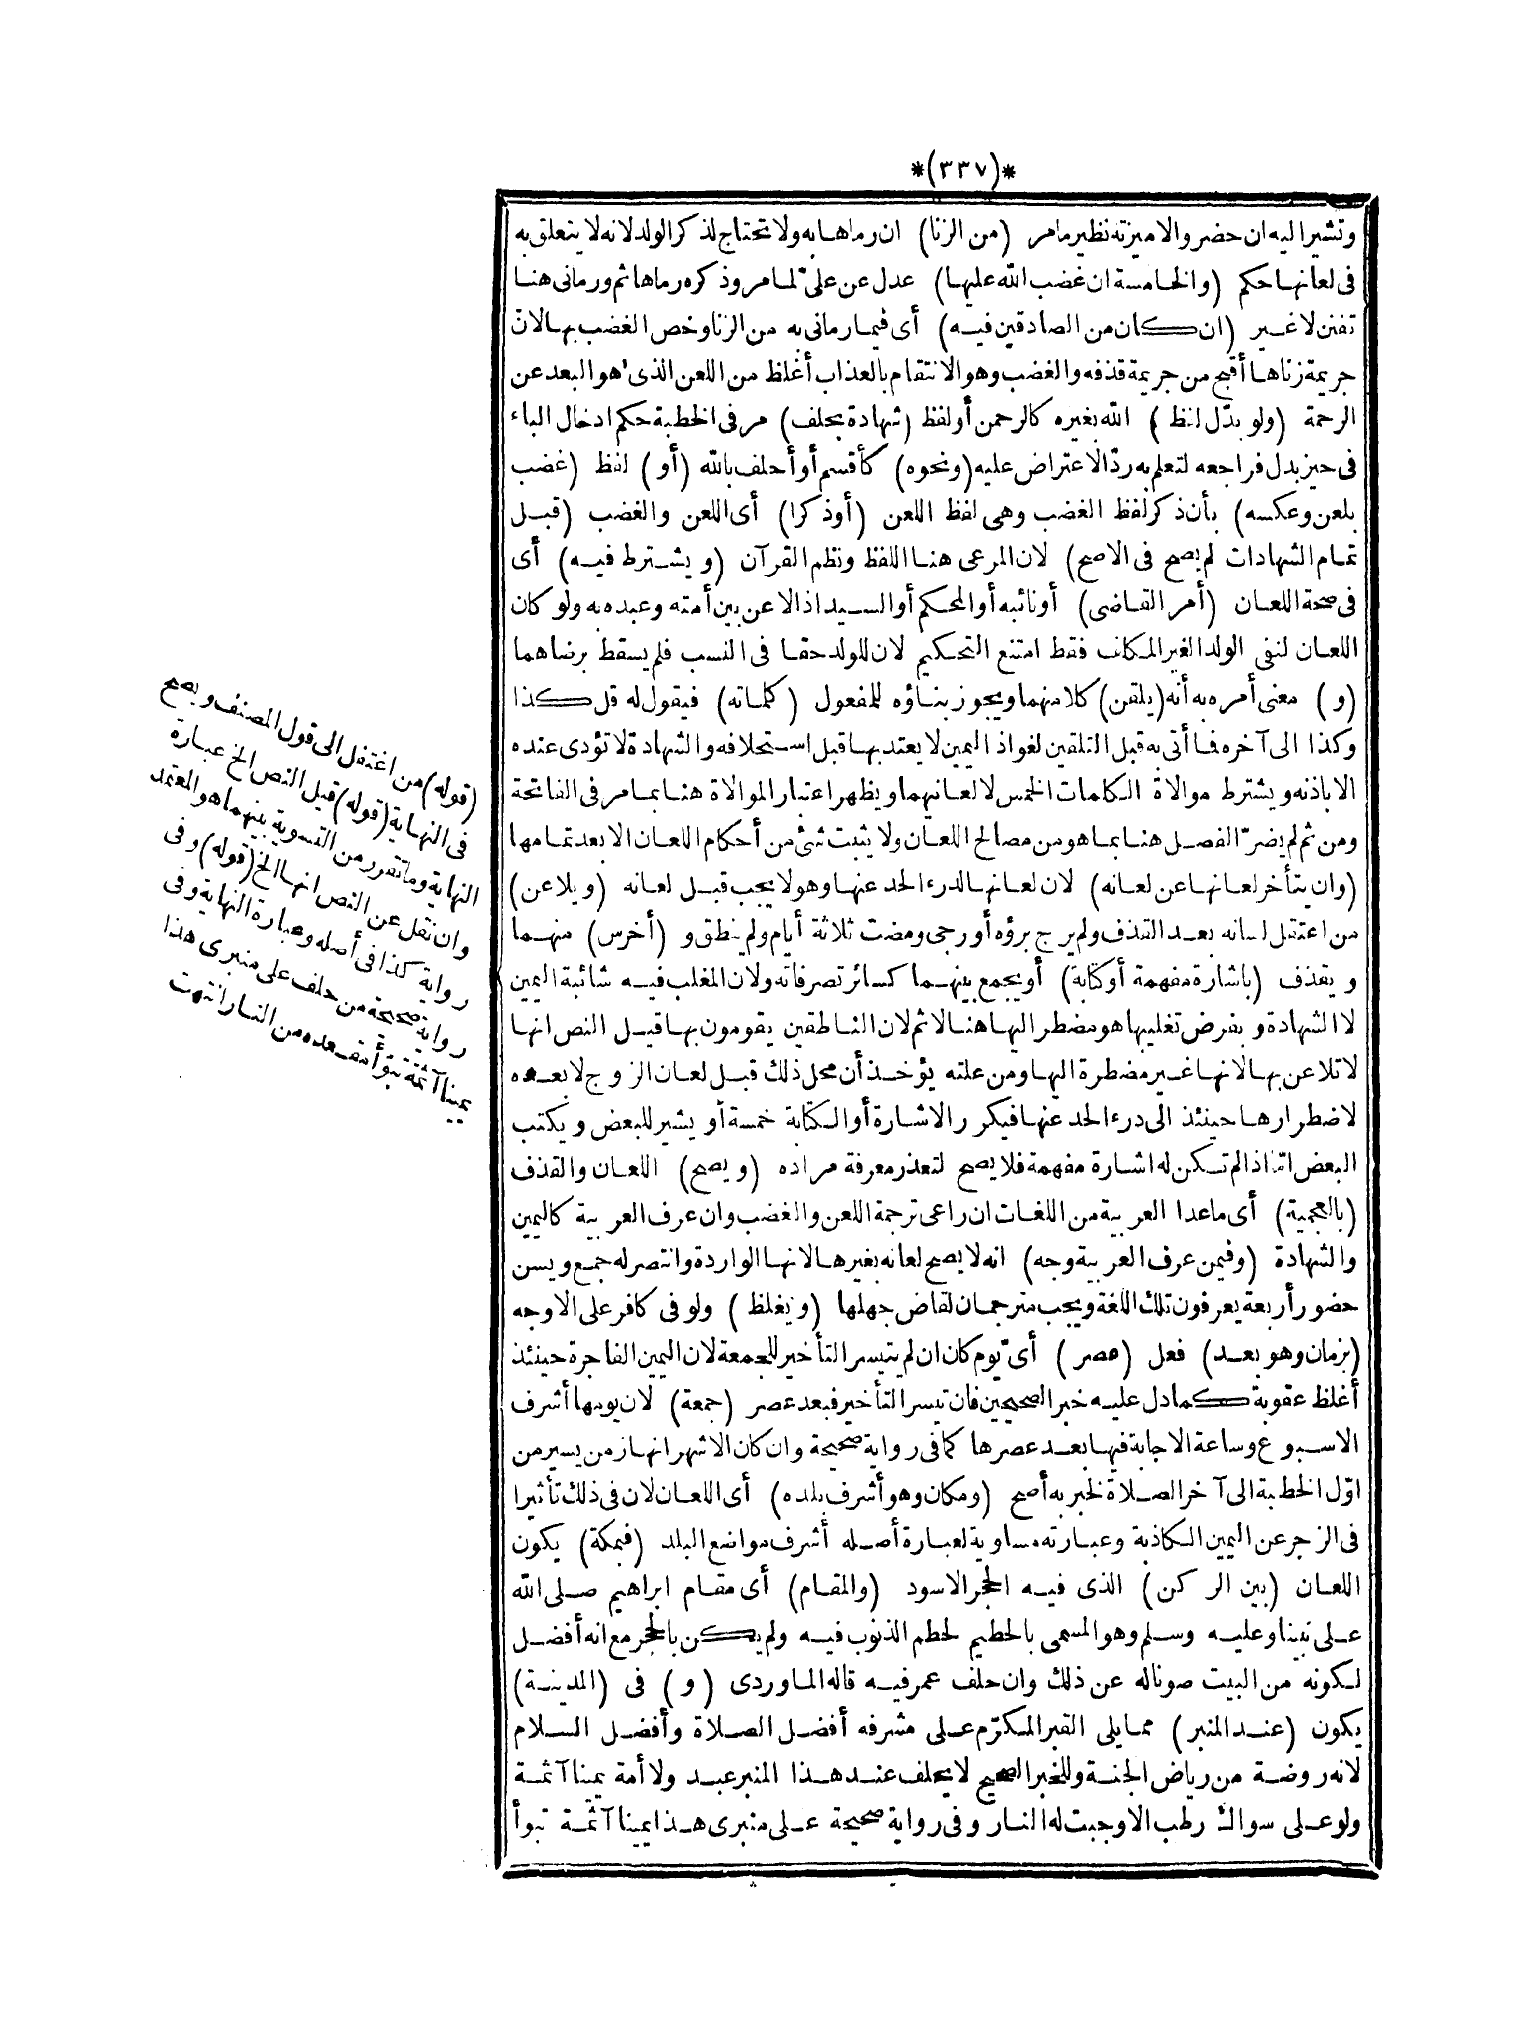 *(٣٣٧)*
وتشير اليه ان حضر والا ميزته نظير مامر (من الزنا) ان رماها به ولا تحتاج لذكر الولد لانه لا يتعلق به
فى لعانها حكم (والخامسة ان غضب الله عليها) عدل عن علىّ لما مر وذكره رماها ثم ورمانى هنا
تفنن لا غير (ان كان من الصادقين فيه) أى فيما رمانى به من الزنا وخص الغضب بها لان
جريمة زناها أقبح من جريمة قذفه والغضب وهو الانتقام بالعذاب أغلظ من اللعن الذى هو البعد عن
الرحمة (ولو بدّل لفظ) الله بغيره كالرحمن أو لفظ (شهادة بحلف) مر فى الخطبة حكم ادخال الباء
فى حيز بدل فراجعه لتعلم به ردّ الاعتراض عليه (ونحوه) كأقسم أو أحلف بالله (أو) لفظ (غضب
بلعن وعكسه) بأن ذكر لفظ الغضب وهى لفظ اللعن (أو ذكرا) أى اللعن والغضب (قبل
تمام الشهادات لم يصح فى الاصح) لان المرعى هنا اللفظ ونظم القرآن (ويشترط فيه) أى
فى صحة اللعان (أمر القاضى) أو نائبه أو المحكم أو السيد اذا لاعن بين أمته وعبده به ولو كان
اللعان لنفى الولد الغير المكلف فقط امتنع التحكيم لان للولد حقا فى النسب فلم يسقط برضاهما
(و) معنى أمره به أنه (يلقن) كلا منهما ويجوز بناؤه للمفعول (كلماته) فيقول له قل كذا
وكذا الى آخره فما أتى به قبل التلقين لغو اذ اليمين لا يعتد بها قبل استحلافه والشهادة لا تؤدى عنده
الا باذنه ويشترط موالاة الكلمات الخمس لا لعانيهما ويظهر اعتبار الموالاة هنا بما مر فى الفاتحة
ومن ثم لم يضرّ الفصل هنا بما هو من مصالح اللعان ولا يثبت شئ من أحكام اللعان الا بعد تمامها
(وان يتأخر لعانها عن لعانه) لان لعانها لدرء الحد عنها وهو لا يجب قبل لعانه (ويلاعن)
من اعتقل لسانه بعد القذف ولم يرج برؤه أو رجى ومضت ثلاثة أيام ولم ينطق و (أخرس) منهما
ويقذف (باشارة مفهمة أو كتابة) أو يجمع بينهما كسائر تصرفاته ولان المغلب فيه شائبة اليمين
لا الشهادة وبفرض تغليبها هو مضطر اليها هنا لا ثم لان الناطقين يقومون بها قيل النص انها
لا تلاعن بها لانها غير مضطرة اليها ومن علته يؤخذ أن محل ذلك قبل لعان الزوج لا بعده
لاضطرارها حينئذ الى درء الحد عنها فيكرر الاشارة أو الكتابة خمسة أو يشير للبعض ويكتب
البعض امّا اذا لم تكن له اشارة مفهمة فلا يصح لتعذر معرفة مراده (ويصح) اللعان والقذف
(بالعجمية) أى ما عدا العربية من اللغات ان راعى ترجمة اللعن والغضب وان عرف العربية كاليمين
والشهادة (وفيمن عرف العربية وجه) انه لا يصح لعانه بغيرها لانها الواردة وانتصر له جمع ويسن
حضور أربعة يعرفون تلك اللغة ويجب مترجمان لقاض جهلها (ويغلظ) ولو فى كافر على الاوجه
(بزمان وهو بعد) فعل (عصر) أىّ يوم كان ان لم يتيسر التأخير للجمعة لان اليمين الفاجرة حينئذ
أغلظ عقوبة كما دل عليه خبر الصحيحين فان تيسر التأخير فبعد عصر (جمعة) لان يومها أشرف
الاسبوع وساعة الاجابة فيها بعد عصرها كما فى رواية صحيحة وان كان الاشهر انها زمن يسير من
اوّل الخطبة الى آخر الصلاة لخبر به أصح (ومكان وهو أشرف بلده) أى اللعان لان فى ذلك تأثيرا
فى الزجر عن اليمين الكاذبة وعبارته مساوية لعبارة أصله أشرف مواضع البلد (فبمكة) يكون
اللعان (بين الركن) الذى فيه الحجر الاسود (والمقام) أى مقام ابراهيم صلى الله
على نبينا وعليه وسلم وهو المسمى بالحطيم لحطم الذنوب فيه ولم يكن بالحجر مع انه أفضل
لكونه من البيت صونا له عن ذلك وان حلف عمر فيه قاله الماوردى (و) فى (المدينة)
يكون (عند المنبر) مما يلى القبر المكرّم على مشرفه أفضل الصلاة وأفضل السلام
لانه روضة من رياض الجنة وللخبر الصحيح لا يحلف عند هذا المنبر عبد ولا أمة يمينا آثمة
ولو على سواك رطب الا وجبت له النار وفى رواية صحيحة على منبرى هذا يمينا آثمة تبوأ
(قوله) من اعتقل الى قول المصنف ويصح
فى النهاية (قوله) قيل النص الخ عبارة
النهاية وما تقرر من التسوية بينهما هو المعتمد
وان نقل عن النص انها الخ (قوله) وفى
رواية كذا فى أصله وعبارة النهاية وفى
رواية صحيحة من حلف على منبرى هذا
يمينا آثمة تبوأ مقعده من النار انتهت